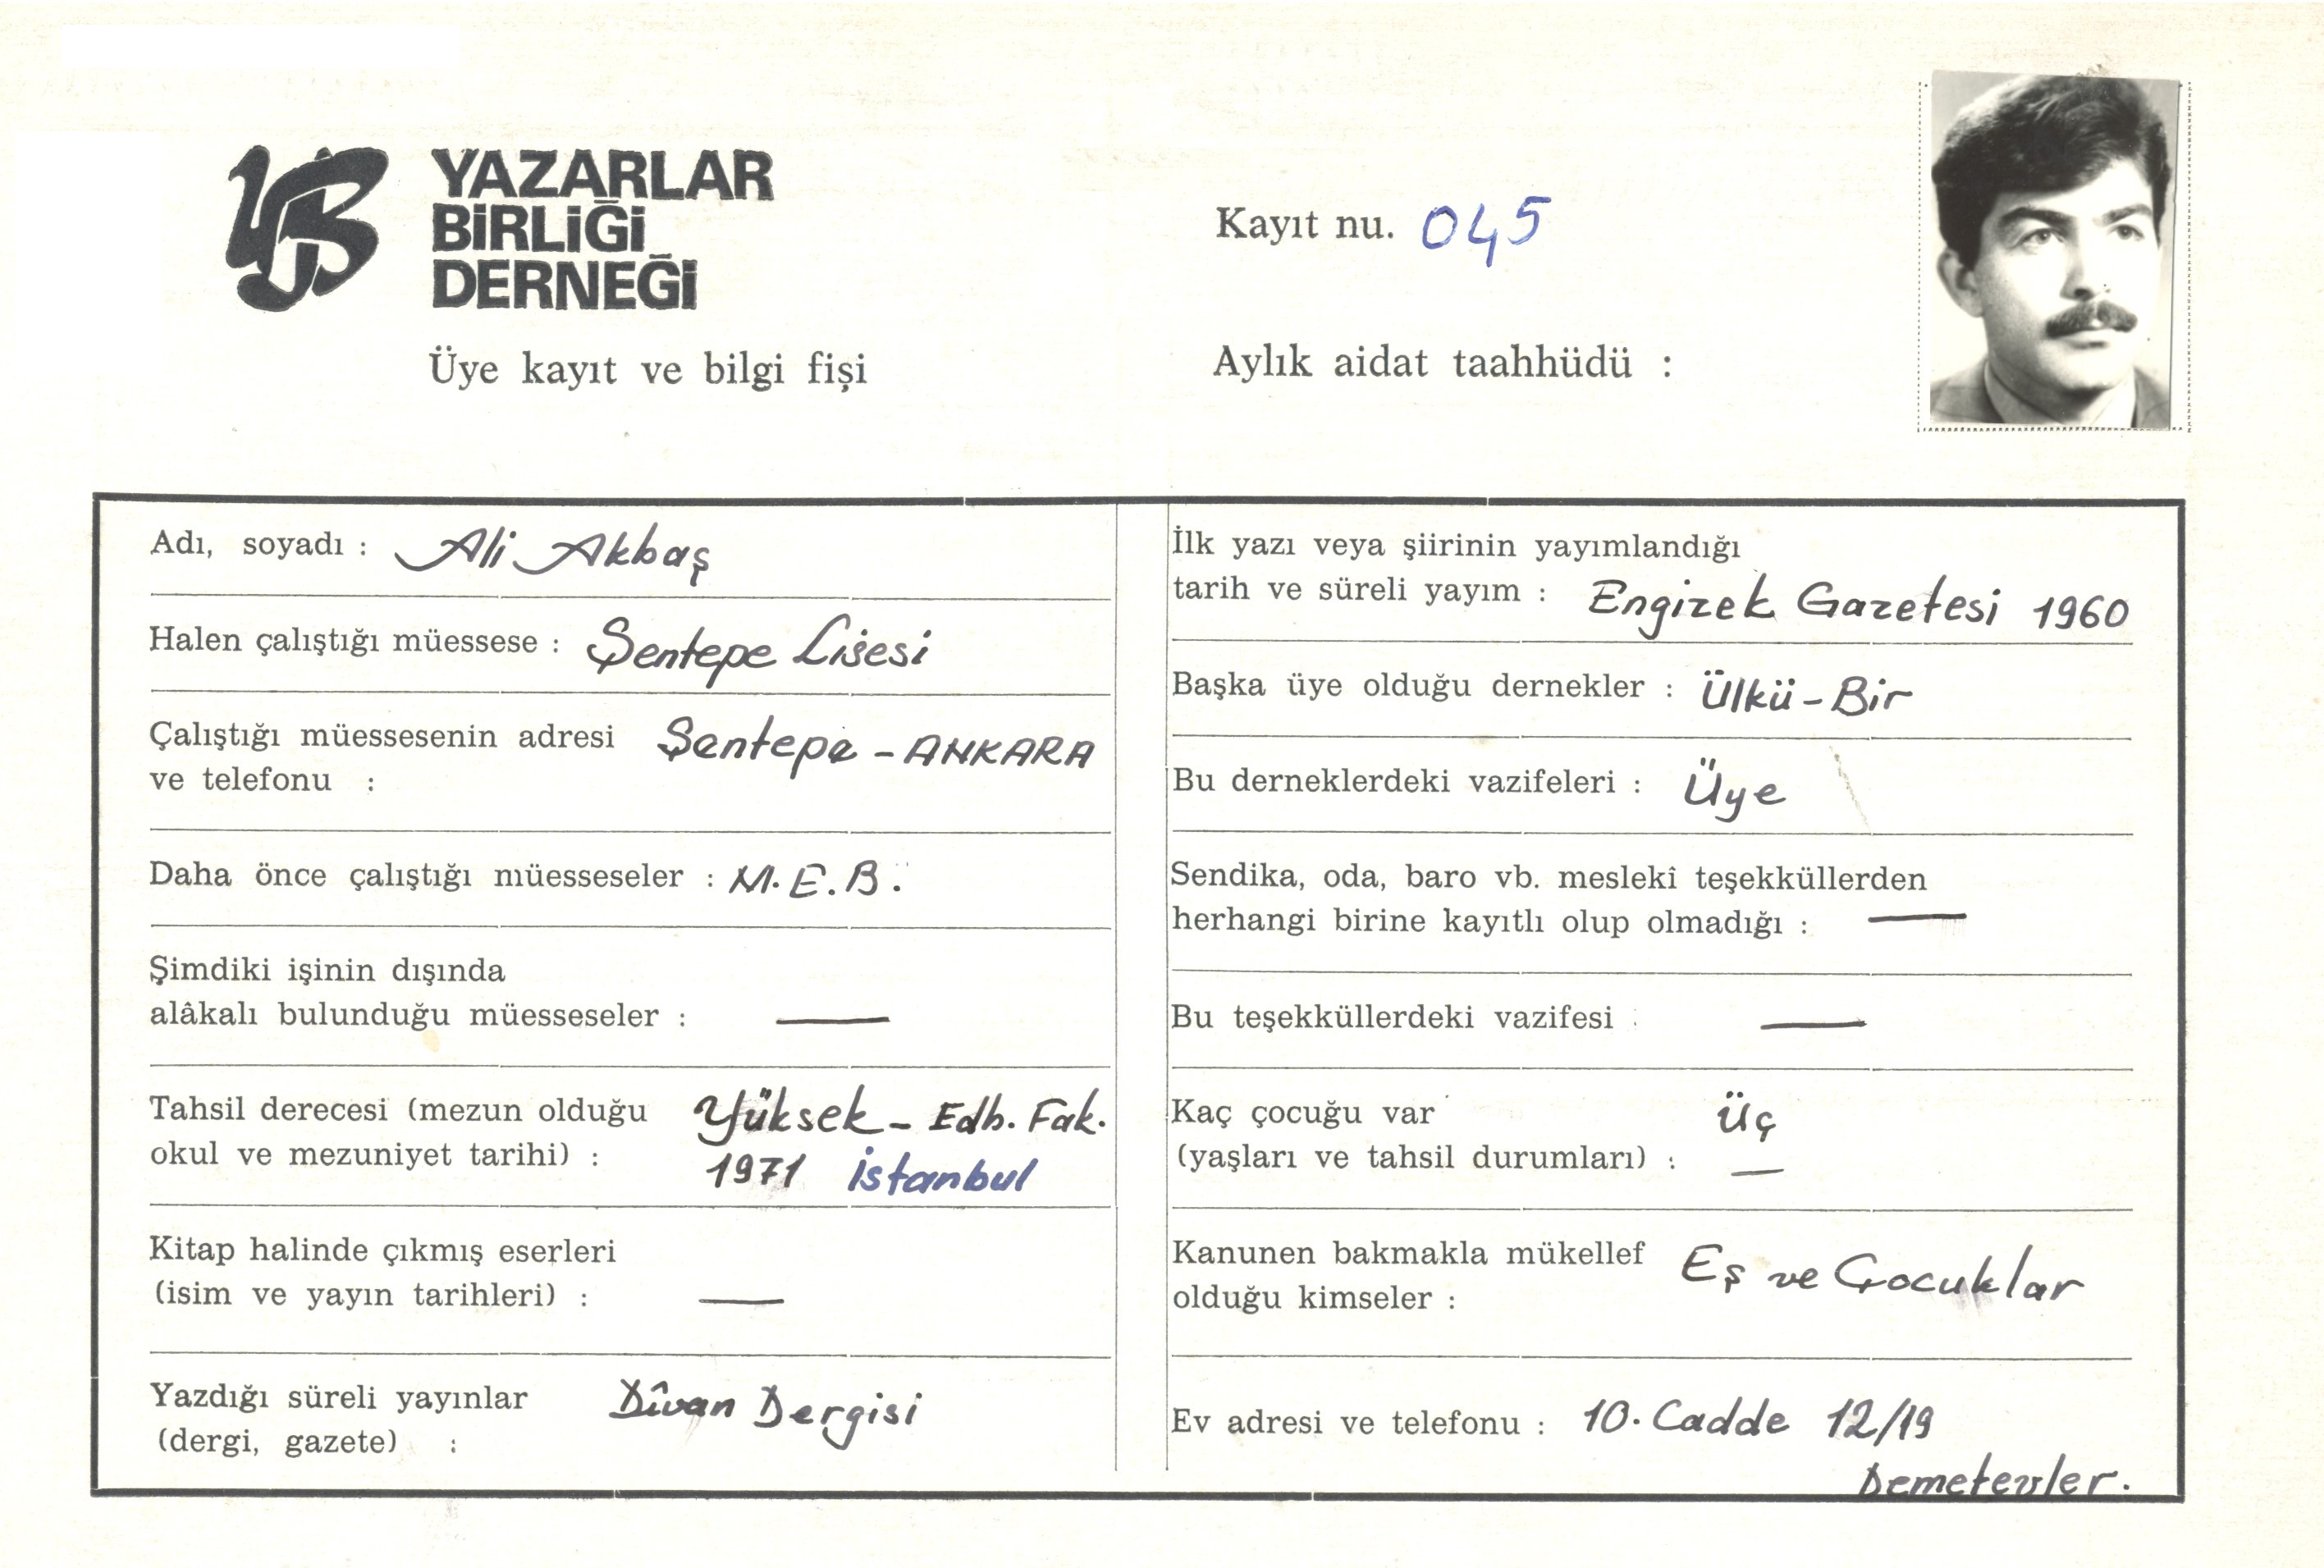 YAZARLAR
BİRLİĞİ
DERNEĞİ
Üye kayıt ve bilgi fişi
Kayıt nu. 045
Aylık aidat taahhüdü :
Adı, soyadı : Ali Akbaş
Halen çalıştığı müessese : Şentepe Lisesi
Çalıştığı müessesenin adresi Şentepe - ANKARA
ve telefonu :
Daha önce çalıştığı müesseseler : M.E.B.
Şimdiki işinin dışında
alâkalı bulunduğu müesseseler : —
Tahsil derecesi (mezun olduğu Yüksek - Edb. Fak.
okul ve mezuniyet tarihi) : 1971 İstanbul
Kitap halinde çıkmış eserleri
(isim ve yayın tarihleri) : —
Yazdığı süreli yayınlar Dîvan Dergisi
(dergi, gazete) :
İlk yazı veya şiirinin yayımlandığı
tarih ve süreli yayım : Engizek Gazetesi 1960
Başka üye olduğu dernekler : Ülkü - Bir
Bu derneklerdeki vazifeleri : Üye
Sendika, oda, baro vb. meslekî teşekküllerden
herhangi birine kayıtlı olup olmadığı : —
Bu teşekküllerdeki vazifesi : —
Kaç çocuğu var Üç
(yaşları ve tahsil durumları) : —
Kanunen bakmakla mükellef Eş ve Çocuklar
olduğu kimseler :
Ev adresi ve telefonu : 10. Cadde 12/19
Demetevler.